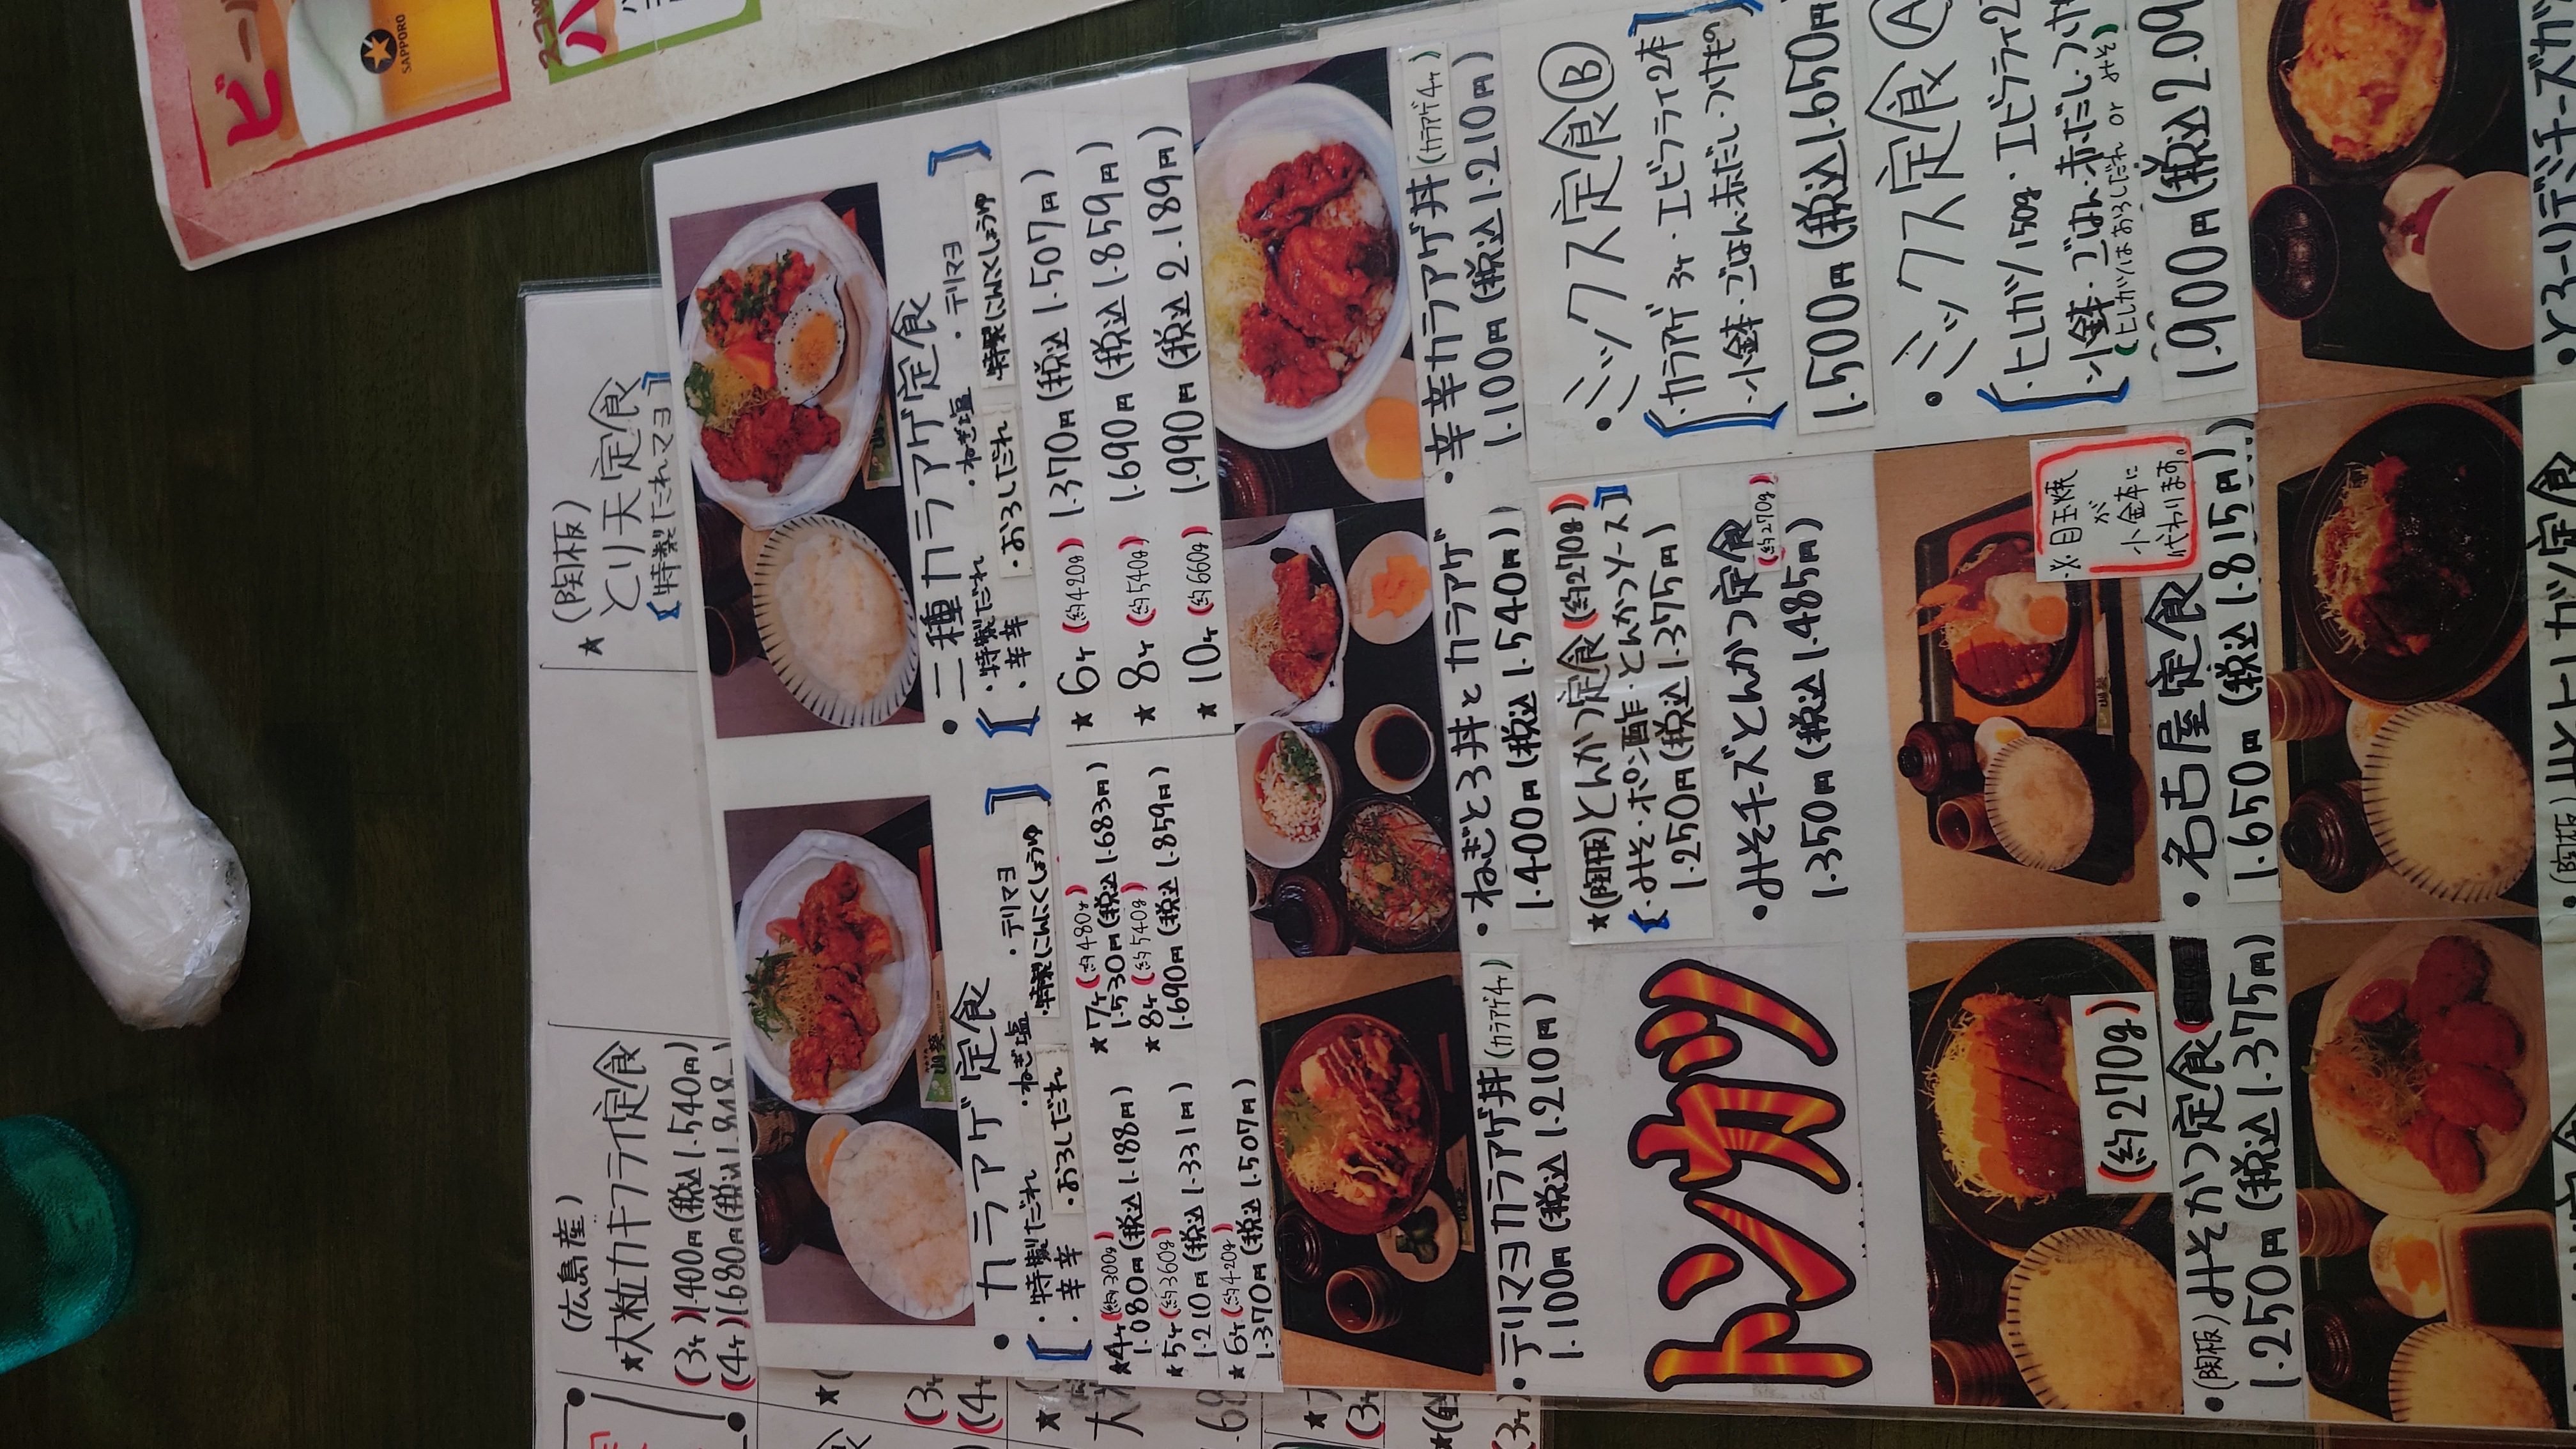 SAPPORO
(広島産)
★大粒カキフライ定食
(3ヶ)1.400円(税込1.540円)
(4ヶ)1.680円(税込1.848
(陶板)
★とり天定食
【特製だれマヨ】
・カラアゲ定食
【・特製だれ・ねぎ塩・テリマヨ
・辛辛・おろしだれ・特製にんにくしょうゆ】
★4ヶ(約300g)
1.080円(税込1.188円)
★5ヶ(約360g)
1.210円(税込1.331円)
★6ヶ(約420g)
1.370円(税込1.507円)
★7ヶ(約480g)
1.530円(税込1.683円)
★8ヶ(約540g)
1.690円(税込1.859円)
・二種カラアゲ定食
【・特製だれ・ねぎ塩・テリマヨ
・辛辛・おろしだれ・特製にんにくしょうゆ】
★6ヶ(約420g)1.370円(税込1.507円)
★8ヶ(約540g)1.690円(税込1.859円)
★10ヶ(約660g)1.990円(税込2.189円)
・テリマヨカラアゲ丼(カラアゲ4ヶ)
1.100円(税込1.210円)
・ねぎとろ丼とカラアゲ
1.400円(税込1.540円)
・辛辛カラアゲ丼(カラアゲ4ヶ)
1.100円(税込1.210円)
トンカツ
★(陶板)とんかつ定食(約270g)
【・みそ・ポン酢・とんかつソース】
1.250円(税込1.375円)
・みそチーズとんかつ定食
(約270g)
1.350円(税込1.485円)
・ミックス定食Ⓑ
【・カラアゲ3ヶ・エビフライ2本】
・小鉢・ごはん・赤だし・つけもの
1.500円(税込1.650円)
・ミックス定食Ⓐ
【・ヒレカツ150g・エビフライ2
・小鉢・ごはん・赤だし・つけ
(ヒレカツはおろしだれ or みそ)
1.900円(税込2.09
(約270g)
・(陶板)みそかつ定食
1.250円(税込1.375円)
※目玉焼
が
小金本に
代わります。
・名古屋定食
1.650円(税込1.815円)